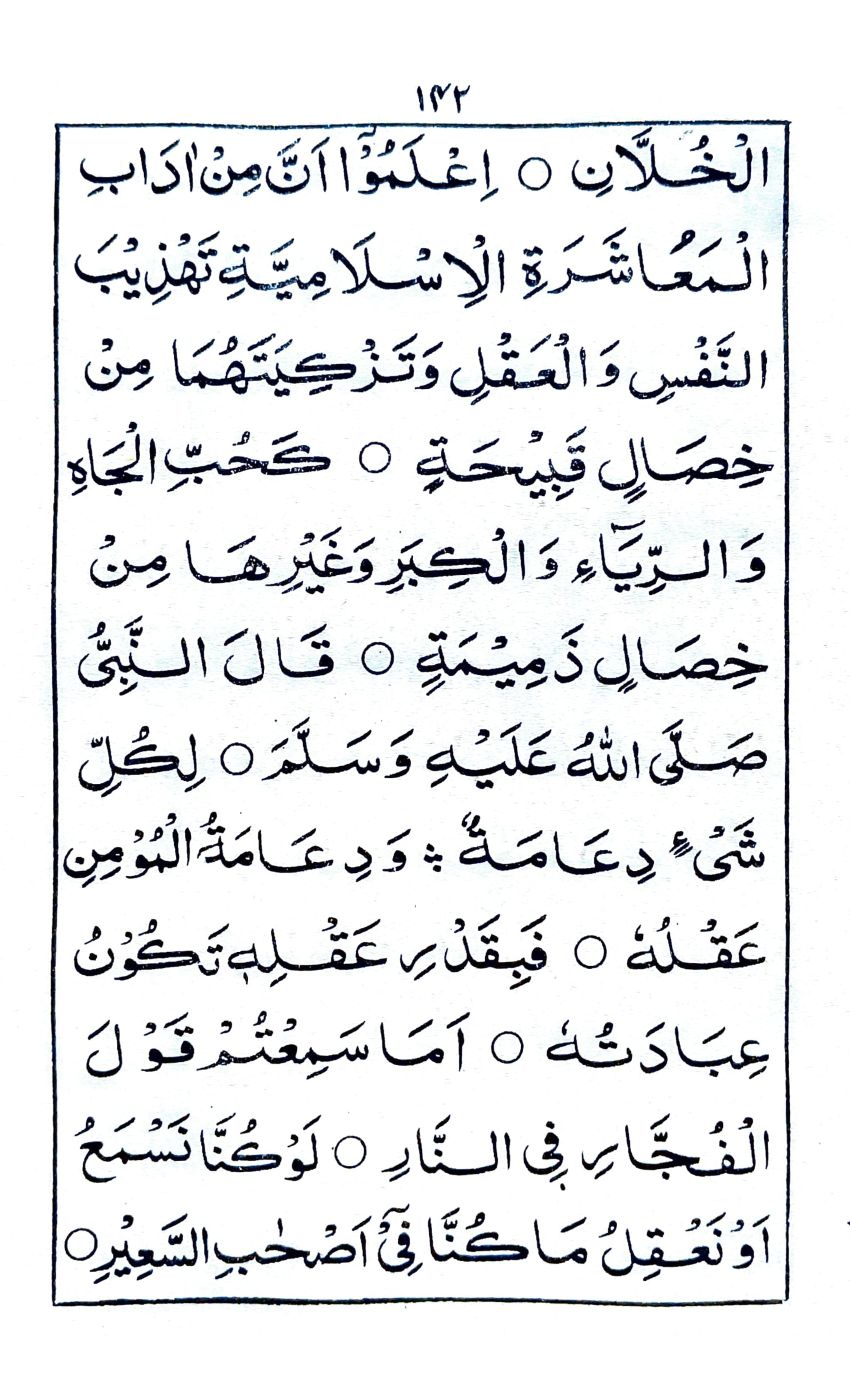 ۱۴۲
الْخُلَّانِ ○ اِعْلَمُوْٓا اَنَّ مِنْ اٰدَابِ
الْمَعُاشَرَةِ الْاِسْلَامِيَّةِ تَهْذِيْبَ
النَّفْسِ وَالْعَقْلِ وَتَزْكِيَتَهُمَا مِنْ
خِصَالٍ قَبِيْحَةٍ ○ كَحُبِّ الْجَاهِ
وَالرِّيَآءِ وَالْكِبَرِ وَغَيْرِهَا مِنْ
خِصَالٍ ذَمِيْمَةٍ ○ قَالَ النَّبِيُّ
صَلَّى اللهُ عَلَيْهِ وَسَلَّمَ ○ لِكُلِّ
شَيْءٍ دِعَامَةٌ ؞ وَدِعَامَةُ الْمُؤْمِنِ
عَقْلُهٗ ○ فَبِقَدْرِ عَقْلِهٖ تَكُوْنُ
عِبَادَتُهٗ ○ اَمَا سَمِعْتُمْ قَوْلَ
الْفُجَّارِ فِي النَّارِ ○ لَوْ كُنَّا نَسْمَعُ
اَوْ نَعْقِلُ مَا كُنَّا فِيْٓ اَصْحٰبِ السَّعِيْرِ ○